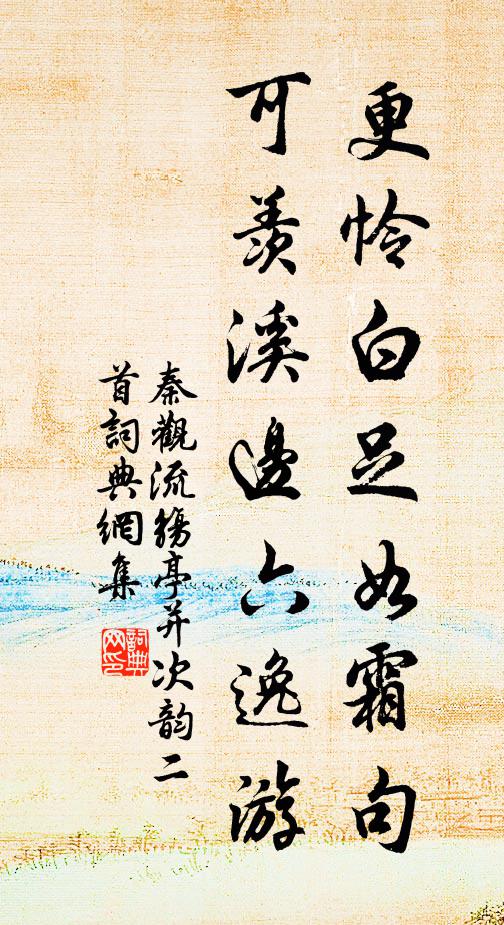 更怜白足如霜句
可羨溪邊六逸游
秦觀流觴亭并次韵二
首詞典網集
詞典网印